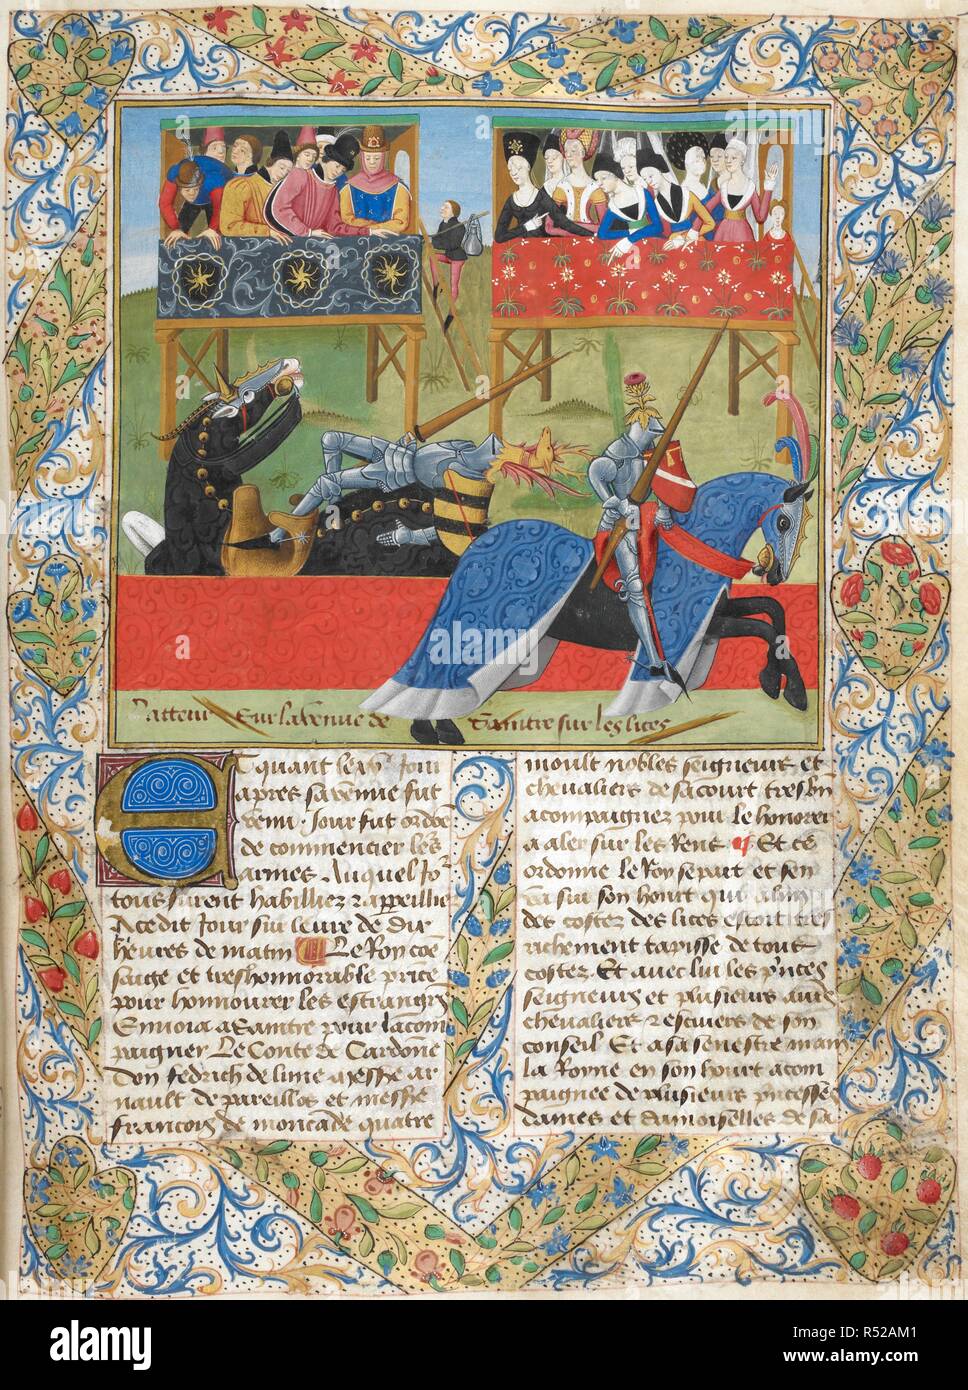 Et quant le xv.e Jour
apres sa venue fut
venu. Jour fut ordōe
de commencier les
armes Auquel Jo.r
tous furent habilliez z appeillie
A ce dit Jour sur leure de dix
heures de matin Le Roy cōe
saige et treshonnorable prīce
pour honnourer les estrangrs
Envoia a Saintre pour lacom
paigner Le Conte de Cardone
Don fedrich de lune messire ar
nault de pareillos et messire
francois de moncade quatre
moult nobles seigneurs et
chevaliers de sa court tresbn̄
acompaigniez pour le honorer
a aler sur les Rens Et ce
ordonne le Roy se part et sen
va sur son hourt qui a lun
des costez des lices estoit tres
richement tapisse de tout
costez Et avec lui les p'nces
seigneurs et plusieurs autrs
chevaliers z escuiers de son
conseil Et a sa senestre main
la Royne en son hourt acom
paignee de plusieurs p'ncesses
dames et damoiselles de sa
Sur la venue de Saintre sur les lices
alamy
a
Image ID: R52AM1
www.alamy.com